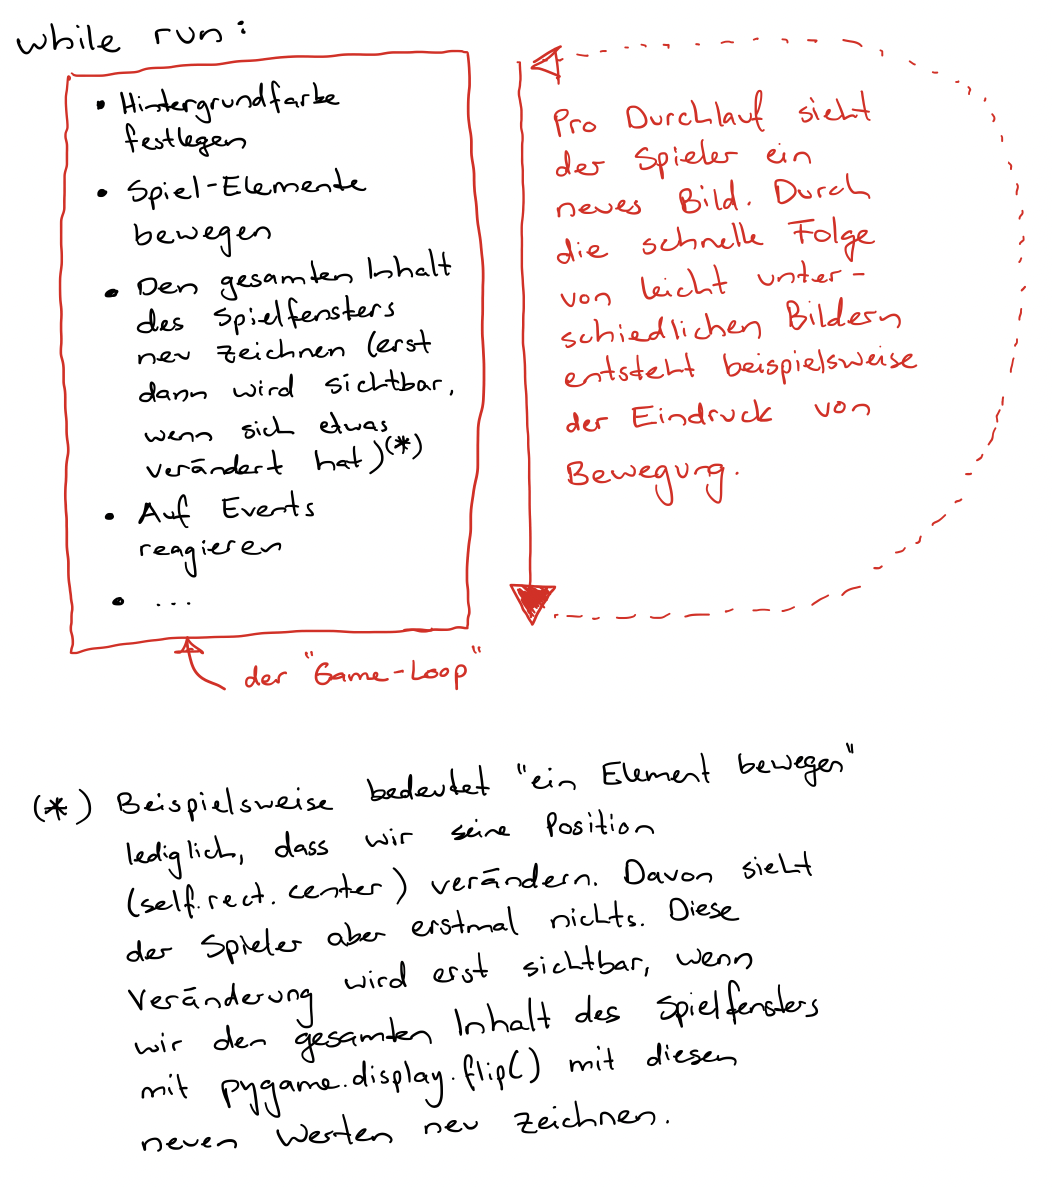 while run:
• Hintergrundfarbe
festlegen
• Spiel-Elemente
bewegen
• Den gesamten Inhalt
des Spielfensters
neu zeichnen (erst
dann wird sichtbar,
wenn sich etwas
verändert hat)(*)
• Auf Events
reagieren
• ...
der "Game-Loop"
Pro Durchlauf sieht
der Spieler ein
neues Bild. Durch
die schnelle Folge
von leicht unter-
schiedlichen Bildern
entsteht beispielsweise
der Eindruck von
Bewegung.
(*) Beispielsweise bedeutet "ein Element bewegen"
lediglich, dass wir seine Position
(self.rect.center) verändern. Davon sieht
der Spieler aber erstmal nichts. Diese
Veränderung wird erst sichtbar, wenn
wir den gesamten Inhalt des Spielfensters
mit pygame.display.flip() mit diesen
neuen Werten neu zeichnen.